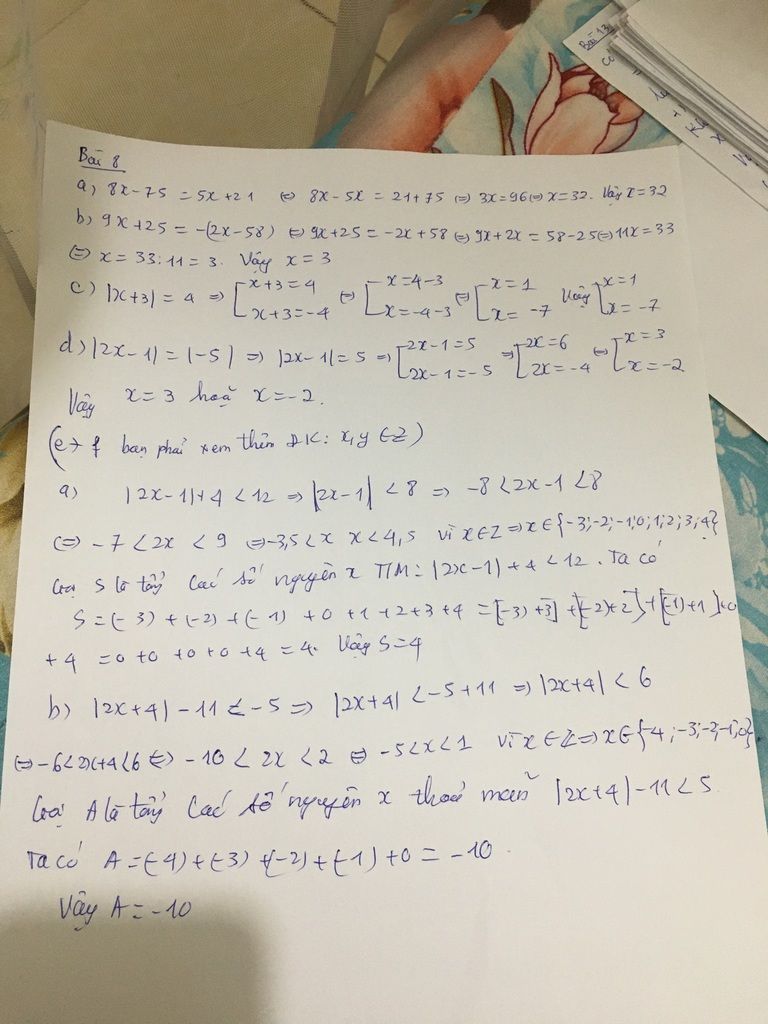 Bài 13
Bài 8
a) 8x-75 = 5x+21 ⇔ 8x-5x = 21+75 ⇔ 3x=96 ⇔ x=32. Vậy x=32
b) 9x+25 = -(2x-58) ⇔ 9x+25 = -2x+58 ⇔ 9x+2x = 58-25 ⇔ 11x=33
⇔ x = 33:11 = 3. Vậy x = 3
c) |x+3| = 4 ⇒ [x+3=4 ⇔ [x=4-3 ⇔ [x=1 Vậy [x=1
x+3=-4 x=-4-3 x=-7 x=-7
d) |2x-1| = |-5| ⇒ |2x-1| = 5 ⇒ [2x-1=5 ⇒ [2x=6 ⇔ [x=3
2x-1=-5 2x=-4 x=-2
Vậy x=3 hoặ x=-2.
(e → f bạn phải xem thêm ĐK: x,y ∈ Z)
a) |2x-1|+4 < 12 ⇒ |2x-1| < 8 ⇒ -8 < 2x-1 < 8
⇔ -7 < 2x < 9 ⇔ -3,5 < x x < 4,5 vì x∈Z ⇒ x ∈ {-3;-2;-1;0;1;2;3;4}
Gọi S là tổng các số nguyên x T/M: |2x-1| + 4 < 12. Ta có
S = (-3) + (-2) + (-1) + 0 + 1 + 2 + 3 + 4 = [(-3)+3] + [(-2)+2] + [(-1)+1] + 0
+ 4 = 0 + 0 + 0 + 0 + 4 = 4. Vậy S = 4
b) |2x+4| - 11 < -5 ⇒ |2x+4| < -5+11 ⇒ |2x+4| < 6
⇔ -6<2x+4<6 ⇔ -10 < 2x < 2 ⇔ -5<x<1 vì x∈Z ⇒ x∈{-4;-3;-2;-1;0}
Gọi A là tổng các số nguyên x thoả mãn |2x+4| - 11 < 5
Ta có A = (-4) + (-3) + (-2) + (-1) + 0 = -10.
Vậy A = -10